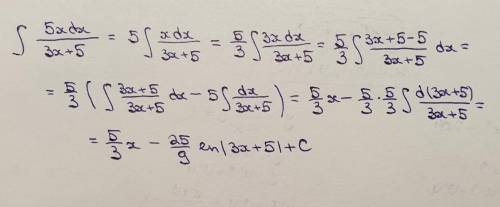 ∫ 5xdx/(3x+5) = 5 ∫ xdx/(3x+5) = 5/3 ∫ 3xdx/(3x+5) = 5/3 ∫ (3x+5-5)/(3x+5) dx =
= 5/3 ( ∫ (3x+5)/(3x+5) dx - 5 ∫ dx/(3x+5) ) = 5/3 x - 5/3 · 5/3 ∫ d(3x+5)/(3x+5) =
= 5/3 x - 25/9 ln|3x+5| + C